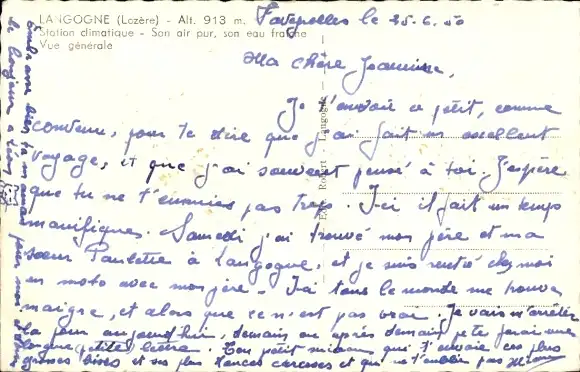 LANGOGNE (Lozère) - Alt. 913 m.
Station climatique - Son air pur, son eau fraîche
Vue générale
le 25.6.50
Ma chère Jeannine,
Je t'envoie ce petit, comme
convenu, pour te dire que j'ai fait un excellent
voyage, et que j'ai souvent pensé à toi. J'espère
que tu ne t'ennuies pas trop. Ici il fait un temps
magnifique. Samedi j'ai trouvé mon père et ma
sœur Paulette à Langogne, et je suis rentré chez moi
en moto avec mon père - Ici tout le monde me trouve
maigre, et alors que ce n'est pas vrai. Je vais m'arrêter
là pour aujourd'hui, demain ou après demain je te ferai une
longue (petite) lettre. Ton petit qui t'envoie ses plus
grosses bises et ses plus tendres caresses et qui ne t'oublie pas
Langogne